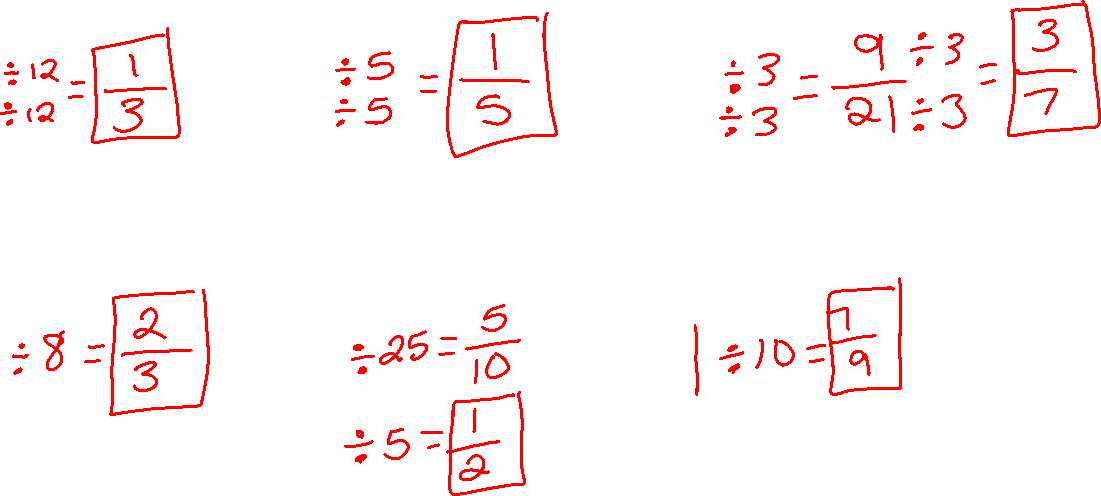 ÷12 ÷12 = 1/3
÷5 ÷5 = 1/5
÷3 ÷3 = 9/21 ÷3 ÷3 = 3/7
÷8 = 2/3
÷25 = 5/10
÷5 = 1/2
| ÷10 = 7/9